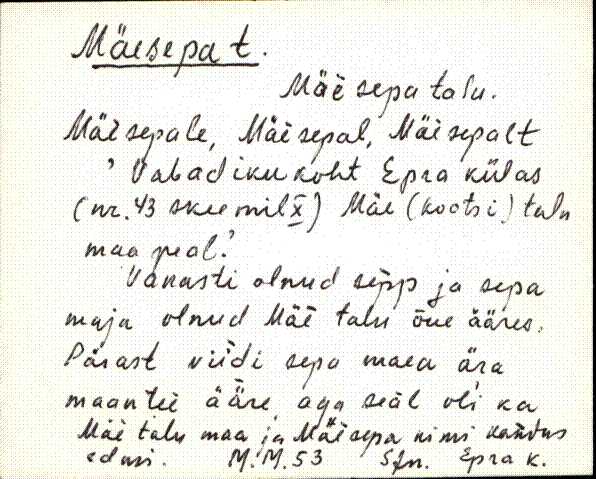 Mäesepa t.
Mäè sepa talu.
Mäèsepale, Mäèsepal, Mäèsepalt
'Vabadikukoht Epra külas
(nr. 43 skeemil X) Mäe (Kootsi) talu
maa peal.'
Vanasti olnud sepp ja sepa
maja olnud Mäè talu õue ääres.
Pärast viidi sepa maea ära
maantee ääre, aga seäl oli ka
Mäè talu maa ja Mäèsepa nimi kandus
edasi. M.M. 53 Sjn. Epra k.